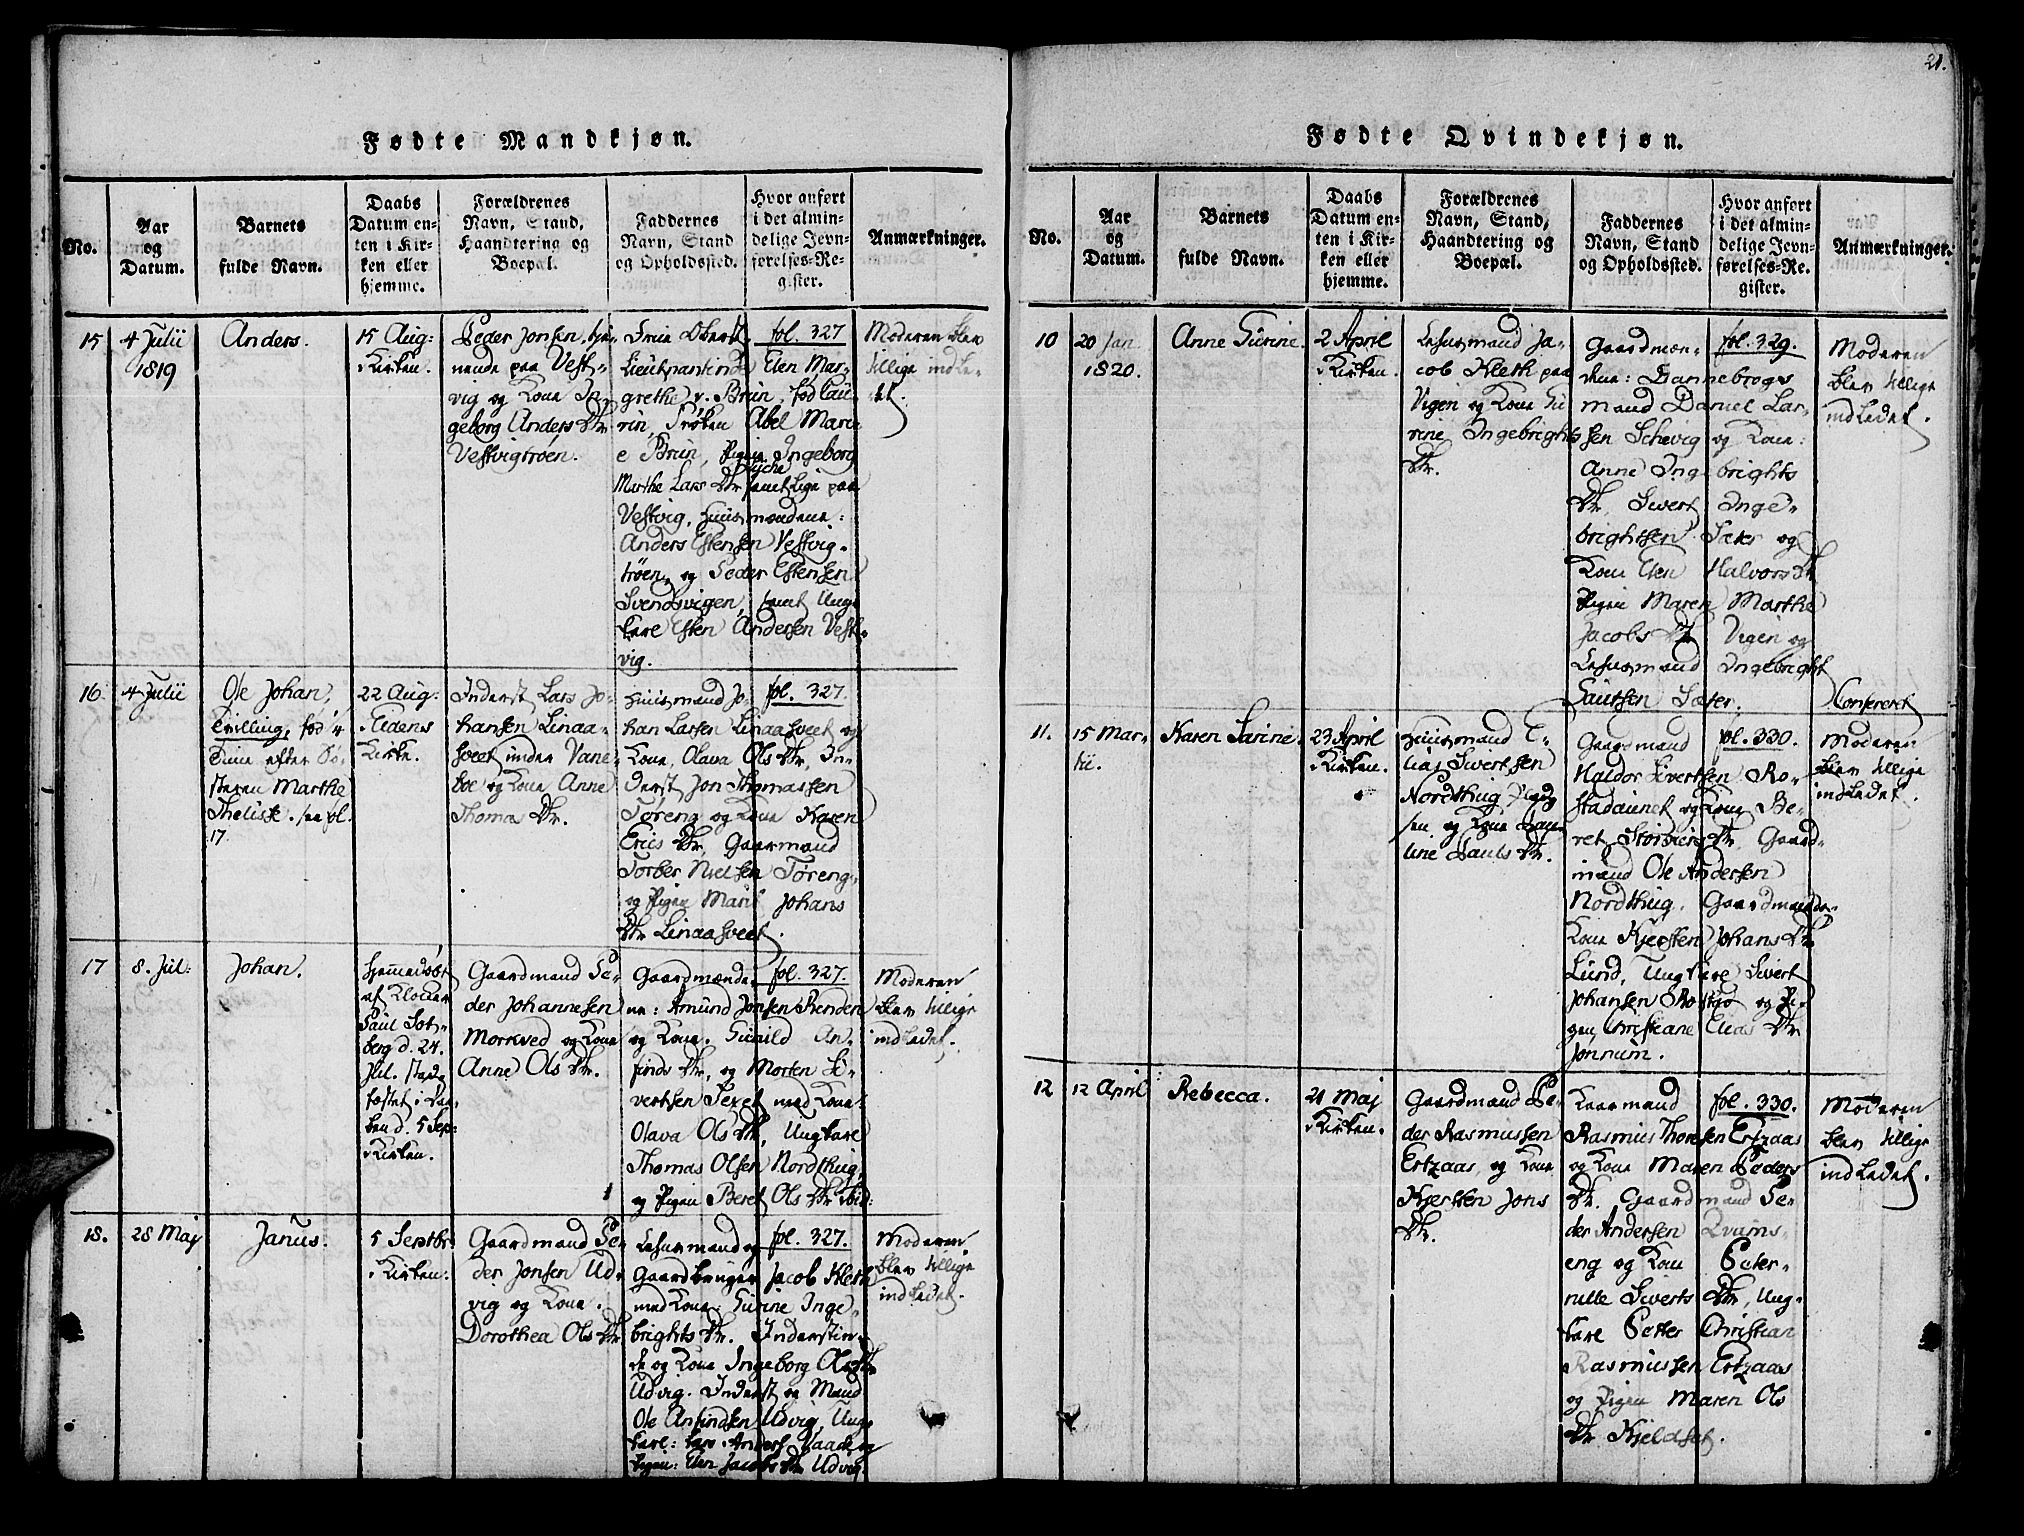 21.
Fødte Mandkjøn.
No.
Aar
og
Datum.
Barnets
fulde Navn.
Daabs
Datum en-
ten i Kir-
ken eller
hjemme.
Forældrenes
Navn, Stand,
Haandtering og
Boepæl.
Faddernes
Navn, Stand
og Opholdssted.
Hvor anført
i det almin-
delige Jevn-
førelses-Re-
gister.
Anmærkninger.
15
4 Julii
1819
Anders.
15 Aug:
i Kirken.
Peder Jonsen, tje-
nende paa Vest-
vig og Kone In-
geborg Anders Dtr
Vestvigtrøen.
Frue Oberst-
Lieutnantinde Elen Mar-
grethe v. Brun, fød Lau-
rin, Frøken Abel Mari-
e Brun, Pigen Ingeborg
Marthe Lars Dtr samtlige paa
Vestvig, Huusmændene:
Anders Estensen Vestvig-
trøen, og Peder Estensen
Svendsvigen, samt Ung-
karl Esten Andersen Vest-
vig.
fol. 327
Moderen blev
tillige indLe-
det.
16.
4 Julii
Ole Johan,
Tvilling, fød ½
Time efter Sø-
steren Marthe
Thelise. see fol.
17.
22 Aug:
i Eldens
Kirke.
Inderst Lars Jo-
hansen Linaa-
sveet under Vane-
boe og Kone Anne
Thomæ Dtr.
Huusmand Jo-
han Larsen Linaasveet og
Kone, Olava Ols Dtr, In-
derst Jon Thomassen
Tøreng og Kone Karen
Erics Dtr, Gaarmand
Torber Nielsen Tøreng,
og Pigen Marit Johans
Dtr Linaasveet.
fol. 327.
17
8. Jul:
Johan.
Hjemmedøbt
af Klokker
Paul Sol-
berg d. 24.
Jul. stad-
fæstet i Daa-
ben d. 5 Sep:
i Kirken.
Gaardmand Pe-
der Johannesen
Morkved og Kone
Anne Ols Dtr.
Gaardmænde-
ne: Amund Jonsen Renden
og Kone. Gunild An-
finds Dtr, og Morten Si-
vertsen Feret med Kone:
Olava Ols Dtr, Ungkarl
Thomas Olsen Nordthug,
og Pigen Beret Ols Dtr ibid:
fol. 327.
Moderen
blev tillige
indLedet.
18.
28 Maj
Janus.
5 Septbr:
i Kirken:
Gaardmand Pe-
der Jonsen Ud-
vig og Kone.
Dorothea Ols Dtr
Lehnsmand og
Gaardbruger Jacob Kleth
med Kone: Gurine Inge-
brights Dtr. Inderstin-
de og Kone Ingeborg Ols Dtr
Udvig. Inderst og Mand
Ole Anfindsen Udvig, Ung-
karl: Lars Anders: Vaade og
Pigen: Elen Jacobs Dtr Udvig.
fol. 327.
Moderen
blev tillige
indLedet.
Fødte Qvindekjøn.
No.
Aar
og
Datum.
Barnets
fulde Navn.
Daabs
Datum en-
ten i Kir-
ken eller
hjemme.
Forældrenes
Navn, Stand,
Haandtering og
Boepæl.
Faddernes
Navn, Stand
og Opholdssted.
Hvor anført
i det almin-
delige Jevn-
førelses-Re-
gister.
Anmærkninger.
10
20 Jan.
1820.
Anne Gurine.
2 April
i Kirken.
Lehnsmand Ja-
cob Kleth paa
Vigen og Kone Gu-
rine Ingebrights
Dtr.
Gaardmæn-
dene: Dannebrogs
mand Daniel Lar-
sen Schevig og Kone:
Anne Ingebrights
Dtr, Sivert Inge-
brightsen Sæter og
Kone Elen Halvors Dtr
Pigen Maren Marthe
Jacobs Dtr Vigen og
Lehnsmand Ingebright
Gautsen Sæter.
fol. 329.
Moderen
blev tillige
indLedet.
Confereret
11.
15 Mar-
tii.
Karen Sarine.
23 April
i Kirken.
Huusmand E-
lias Sivertsen
Nordthug Plads
sen og Kone Pau-
line Pauls Dtr.
Gaardmand
Haldor Sivertsen Ro-
stadaunet og Kone Be-
ret Dtr, Gaard-
mand Ole Andersen
Nordthug. Gaardmands-
Kone Kjersten Johans Dtr
Lund, Ungkarl Sivert
Johansen Rostad og Pi-
gen, Christiane Elias Dtr
Jørnum.
fol. 330.
Moderen
blev tillige
indLedet.
12
12 April
Rebecca.
21 Maj
i Kirken.
Gaardmand Pe-
der Rasmussen
Ertzaas, og Kone
Kjersten Jons
Dtr.
Kaarmand
Rasmus Thoresen Ertzaas
og Kone Maren Peders
Dtr. Gaardmand Pe-
der Andersen Qvams-
eng og Kone Peter-
nille Siverts Dtr, Ung-
karl Petter Christian
Rasmussen Ertzaas
og Pigen Maren Ols
Dtr Kjeldset.
fol. 330.
Moderen
blev tillige
indLedet.